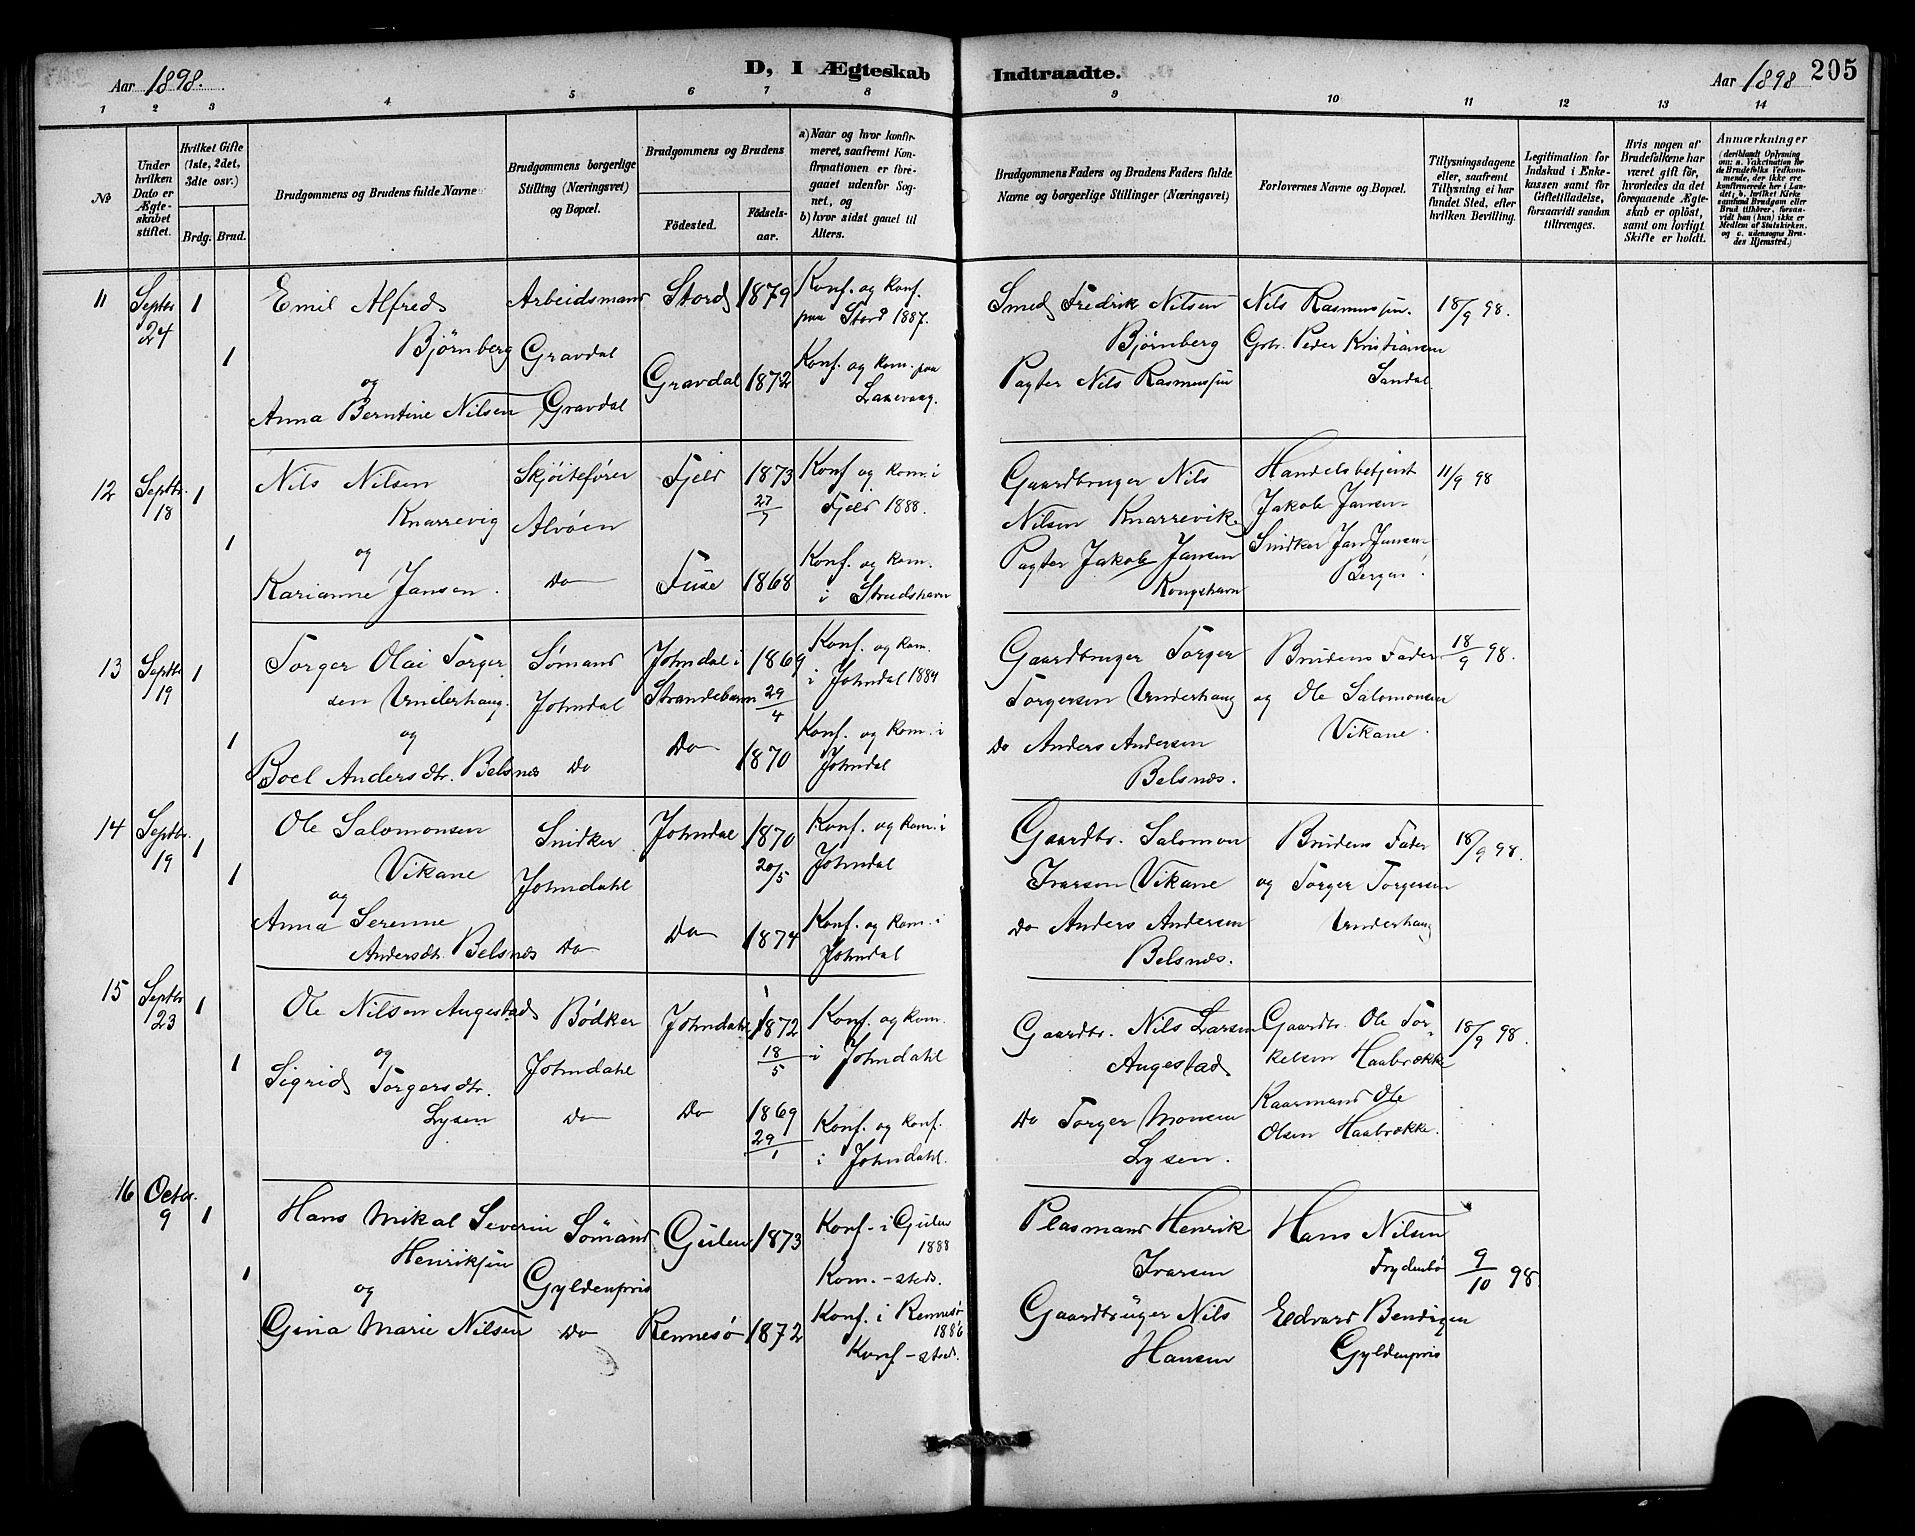 Aar 1898.
D, I Ægteskab Indtraadte.
Aar 1898 205
1 2 3 4 5 6 7 8 9 10 11 12 13 14
No
Under hvilken Dato er Ægteskabet stiftet.
Hvilket Gifte (1ste, 2det, 3die osv.)
Brdg. Brud.
Brudgommens og Brudens fulde Navne
Brudgommens borgerlige Stilling (Næringsvei) og Bopæl.
Brudgommens og Brudens
Fødested.
Fødselsaar.
a) Naar og hvor konfirmeret, saafremt Konfirmationen er foregaaet udenfor Sognet, og
b) hvor sidst gaaet til Alters.
Brudgommens Faders og Brudens Faders fulde Navne og borgerlige Stillinger (Næringsvei)
Forlovernes Navne og Bopæl.
Tillysningsdagene eller, saafremt Tillysning ei har fundet Sted, efter hvilken Bevilling.
Legitimation for Indskud i Enkekassen samt for Giftetilladelse, forsaavidt saadan tiltrænges.
Hvis nogen af Brudefolkene har været gift før, hvorledes da det foregaaende Ægteskab er opløst, samt om lovligt Skifte er holdt.
Anmærkninger
(deriblandt Oplysning om: a. Vakcination for de Brudefolks Vedkommende, der ikke ere konfirmerede her i Landet; b. hvilket Kirkesamfund Brudgom eller Brud tilhører, forsaavidt han (hun) ikke er Medlem af Statskirken, og c. udensogns Brudes Hjemsted.)
11 Septbr 24 1 1
Emil Alfred
Bjørnberg
og
Anna Berntine Nilsen
Arbeidsmand
Gravdal
Gravdal
Stord
Gravdal
1879
1872
Konf. og Konf.
paa Stord 1887.
Konf. og kom. paa
Laxevaag.
Smed Fredrik Nilsen
Bjørnberg
Pagter Nils Rasmussen
Nils Rasmussen.
Gbr. Peder Kristiansen
Sandal
18/9 98.
12 Septbr. 18 1 1
Nils Nilsen
Knarrevig
og
Karianne Jansen.
Skjøitefører
Alvøen
Do
Fjeld
Fuse
1873
27/7
1868
Konf og kom. i
Fjeld 1888.
Konf. og kom.
i Strudshavn
Gaardbruger Nils
Nilsen Knarrevik
Pagter Jakob Jansen
Kongshavn
Handelsbetjent
Jakob Jansen
Snidker Jan Jansen
Bergen.
11/9 98
13 Septbr 19 1 1
Torger Olai Torger
sen Underhaug.
og
Boel Andersdtr. Belsnæs
Sømand
Johndal
Do
Johndal i
Strandebarm
Do
1869
29/4
1870
Konf. og kom.
i Johndal 1884
Konf. og kom. i
Johndal
Gaardbruger Torger
Torgersen Underhaug
Do Anders Andersen
Belsnæs.
Brudens Fader
og Ole Salomonsen
Vikane.
18/9 98.
14 Septbr. 19 1 1
Ole Salomonsen
Vikane
og
Anna Serenne
Andersdtr. Belsnæs
Snidker
Johndahl
Do
Johndal
Do
1870
20/5
1874
Konf. og kom. i
Johndal
Konf. og kom. i
Johndal
Gaardbr. Salomon
Ivarsen Vikane
Do Anders Andersen
Belsnæs.
Brudens Fader
og Torger Torgersen
Underhaug
18/9 98.
15 Septbr 23 1 1
Ole Nilsen Augestad
og
Sigrid Torgersdtr.
Lysen
Bødker
Johndahl
Do
Johndahl
Do
1872
18/5
1869
29/1
Konf. og kom.
i Johndahl
Konf. og konf.
i Johndahl.
Gaardbr. Nils Larsen
Augestad
Do Torger Monsen
Lysen.
Gaardbr. Ole Tor-
kelsen Haabrække
Kaarmand Ole
Olsen Haabrække.
18/9 98.
16 Octbr. 9 1 1
Hans Mikal Severin
Henriksen
og
Gina Marie Nilsen
Sømand
Gyldenpris
Do
Gulen
Rennesø
1873
1872
Konf. i Gulen
1888
Kom. - steds.
Konf. i Rennesø
1886
Konf - steds.
Plasmand Henrik
Ivarsen
Gaardbruger Nils
Hansen
Hans Nilsen
Frydenbø
Edvard Bendixen
Gyldenpris
9/10 98